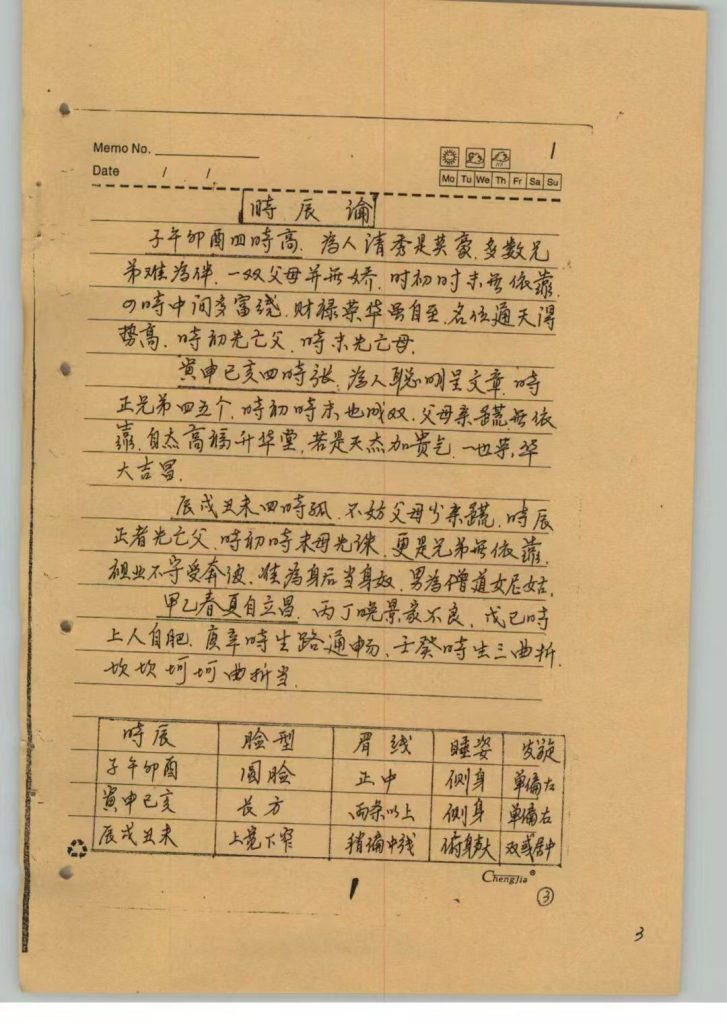 Memo No.
1
Date / /
Mo Tu We Th Fr Sa Su
時辰論
子午卯酉四時高.為人清秀是英豪.多数兄
弟难為伴.一双父母并無娇.时初时末無依靠.
の時中间多富绕.财禄荣华虽自至.名位通天得
势高.時初先亡父.時末先亡母.
寅申已亥四時张.為人聪明呈文章.時
正兄弟四五个.時初時末也成双.父母亲疏無依
靠.自然高福升华堂.若是天杰加贵气.一也荣华
大吉昌.
辰戌丑未四時孤.不妨父母少亲疏.時辰
正者先亡父.時初時末母先诛.更是兄弟無依靠.
祖业不守受奔波.难為身后当身奴.男為僧道女尼姑.
甲乙春夏自立昌.丙丁晚景家不良.戊已時
上人自肥.庚辛時生路通畅、壬癸時生三曲折.
坎坎坷坷曲折当.
時辰 脸型 眉线 睡姿 发旋
子午卯酉 圆脸 正中 侧身 单偏左
寅申已亥 长方 两条以上 侧身 单偏右
辰戌丑未 上宽下窄 稍偏中线 俯身大 双或居中
ChengJia
1
3
3